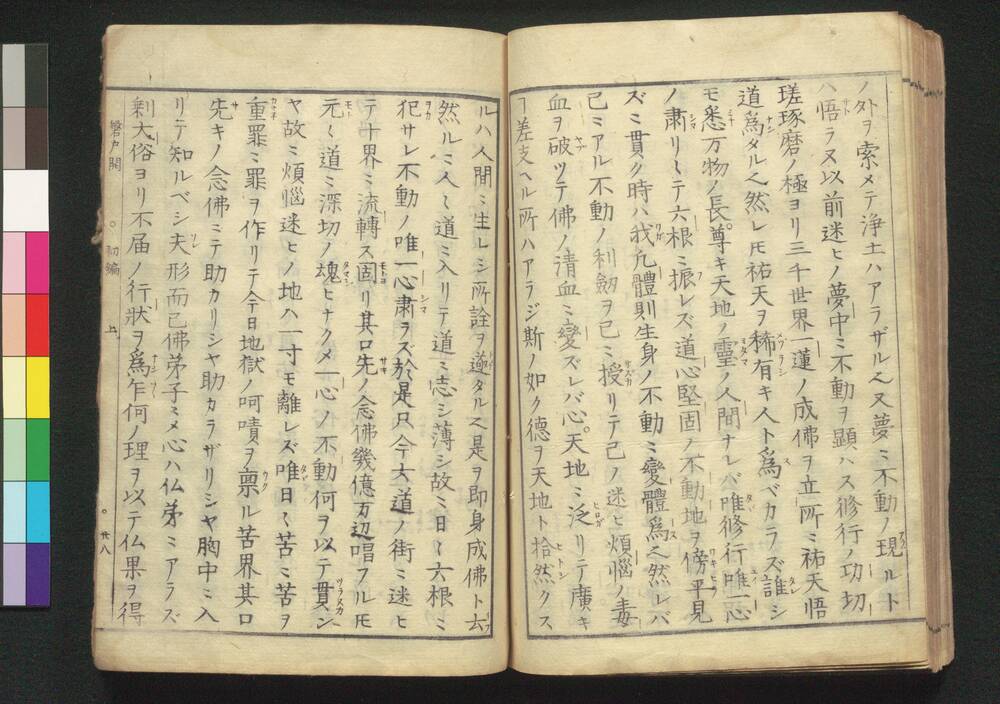 ノ外ヲ索メテ浄土ハアラザル也又夢ミ不動ノ現ルト
ハ悟ラヌ以前迷ヒノ夢中ミ不動ヲ顕ハス修行ノ功切
瑳琢磨ノ極ヨリ三千世界一蓮ノ成佛ヲ立所ミ祐天悟
道爲タル也然レ𪜈祐天ヲ稀有キ人ト爲ベカラズ誰シ
モ悉万物ノ長尊キ天地ノ靈ノ人間ナレバ唯修行唯一心
ノ肅リ〱テ六根ミ振レズ道心堅固ノ不動地ヲ傍平見
ズミ貫ク時ハ我凢體則生身ノ不動ミ變體爲也然レバ
己ミアル不動ノ利劔ヲ己ミ授リテ己ノ迷ヒ煩惱ノ毒
血ヲ破ツテ佛ノ清血ミ變ズレバ心天地ミ泛リテ廣キ
ヿ差支ヘル所ハアラジ斯ノ如ク德ヲ天地ト拾然クス
ルハ人間ミ生レシ所詮ヲ遂タル也是ヲ即身成佛ト云
然ルミ人〱道ミ入リテ道ミ志シ薄シ故ミ日〱六根ミ
犯サレ不動ノ唯一心肅ヲズ於是只今大道ノ街ミ迷ヒ
テ十界ミ流轉ス固リ其口先ノ念佛幾億万辺唱フル𪜈
元〱道ミ深切ノ魂ヒナクメ一心ノ不動何ヲ以テ貫ン
ヤ故ミ煩惱迷ヒノ地ハ一寸モ離レズ唯日〱苦ミ苦ヲ
重罪ミ罪ヲ作リテ今日地獄ノ呵嘖ヲ禀ル苦界其口
先キノ念佛ミテ助カリシヤ助カラザリシヤ胸中ミ入
リテ知ルベシ夫形而已佛弟子ミメ心ハ仏弟ミアラズ
剰大俗ヨリ不届ノ行狀ヲ爲乍何ノ理ヲ以テ仏果ヲ得
磐戸開 ○初編 上 ○廿八